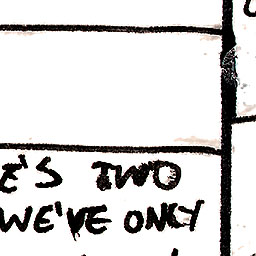 E'S TWO
WE'VE ONLY